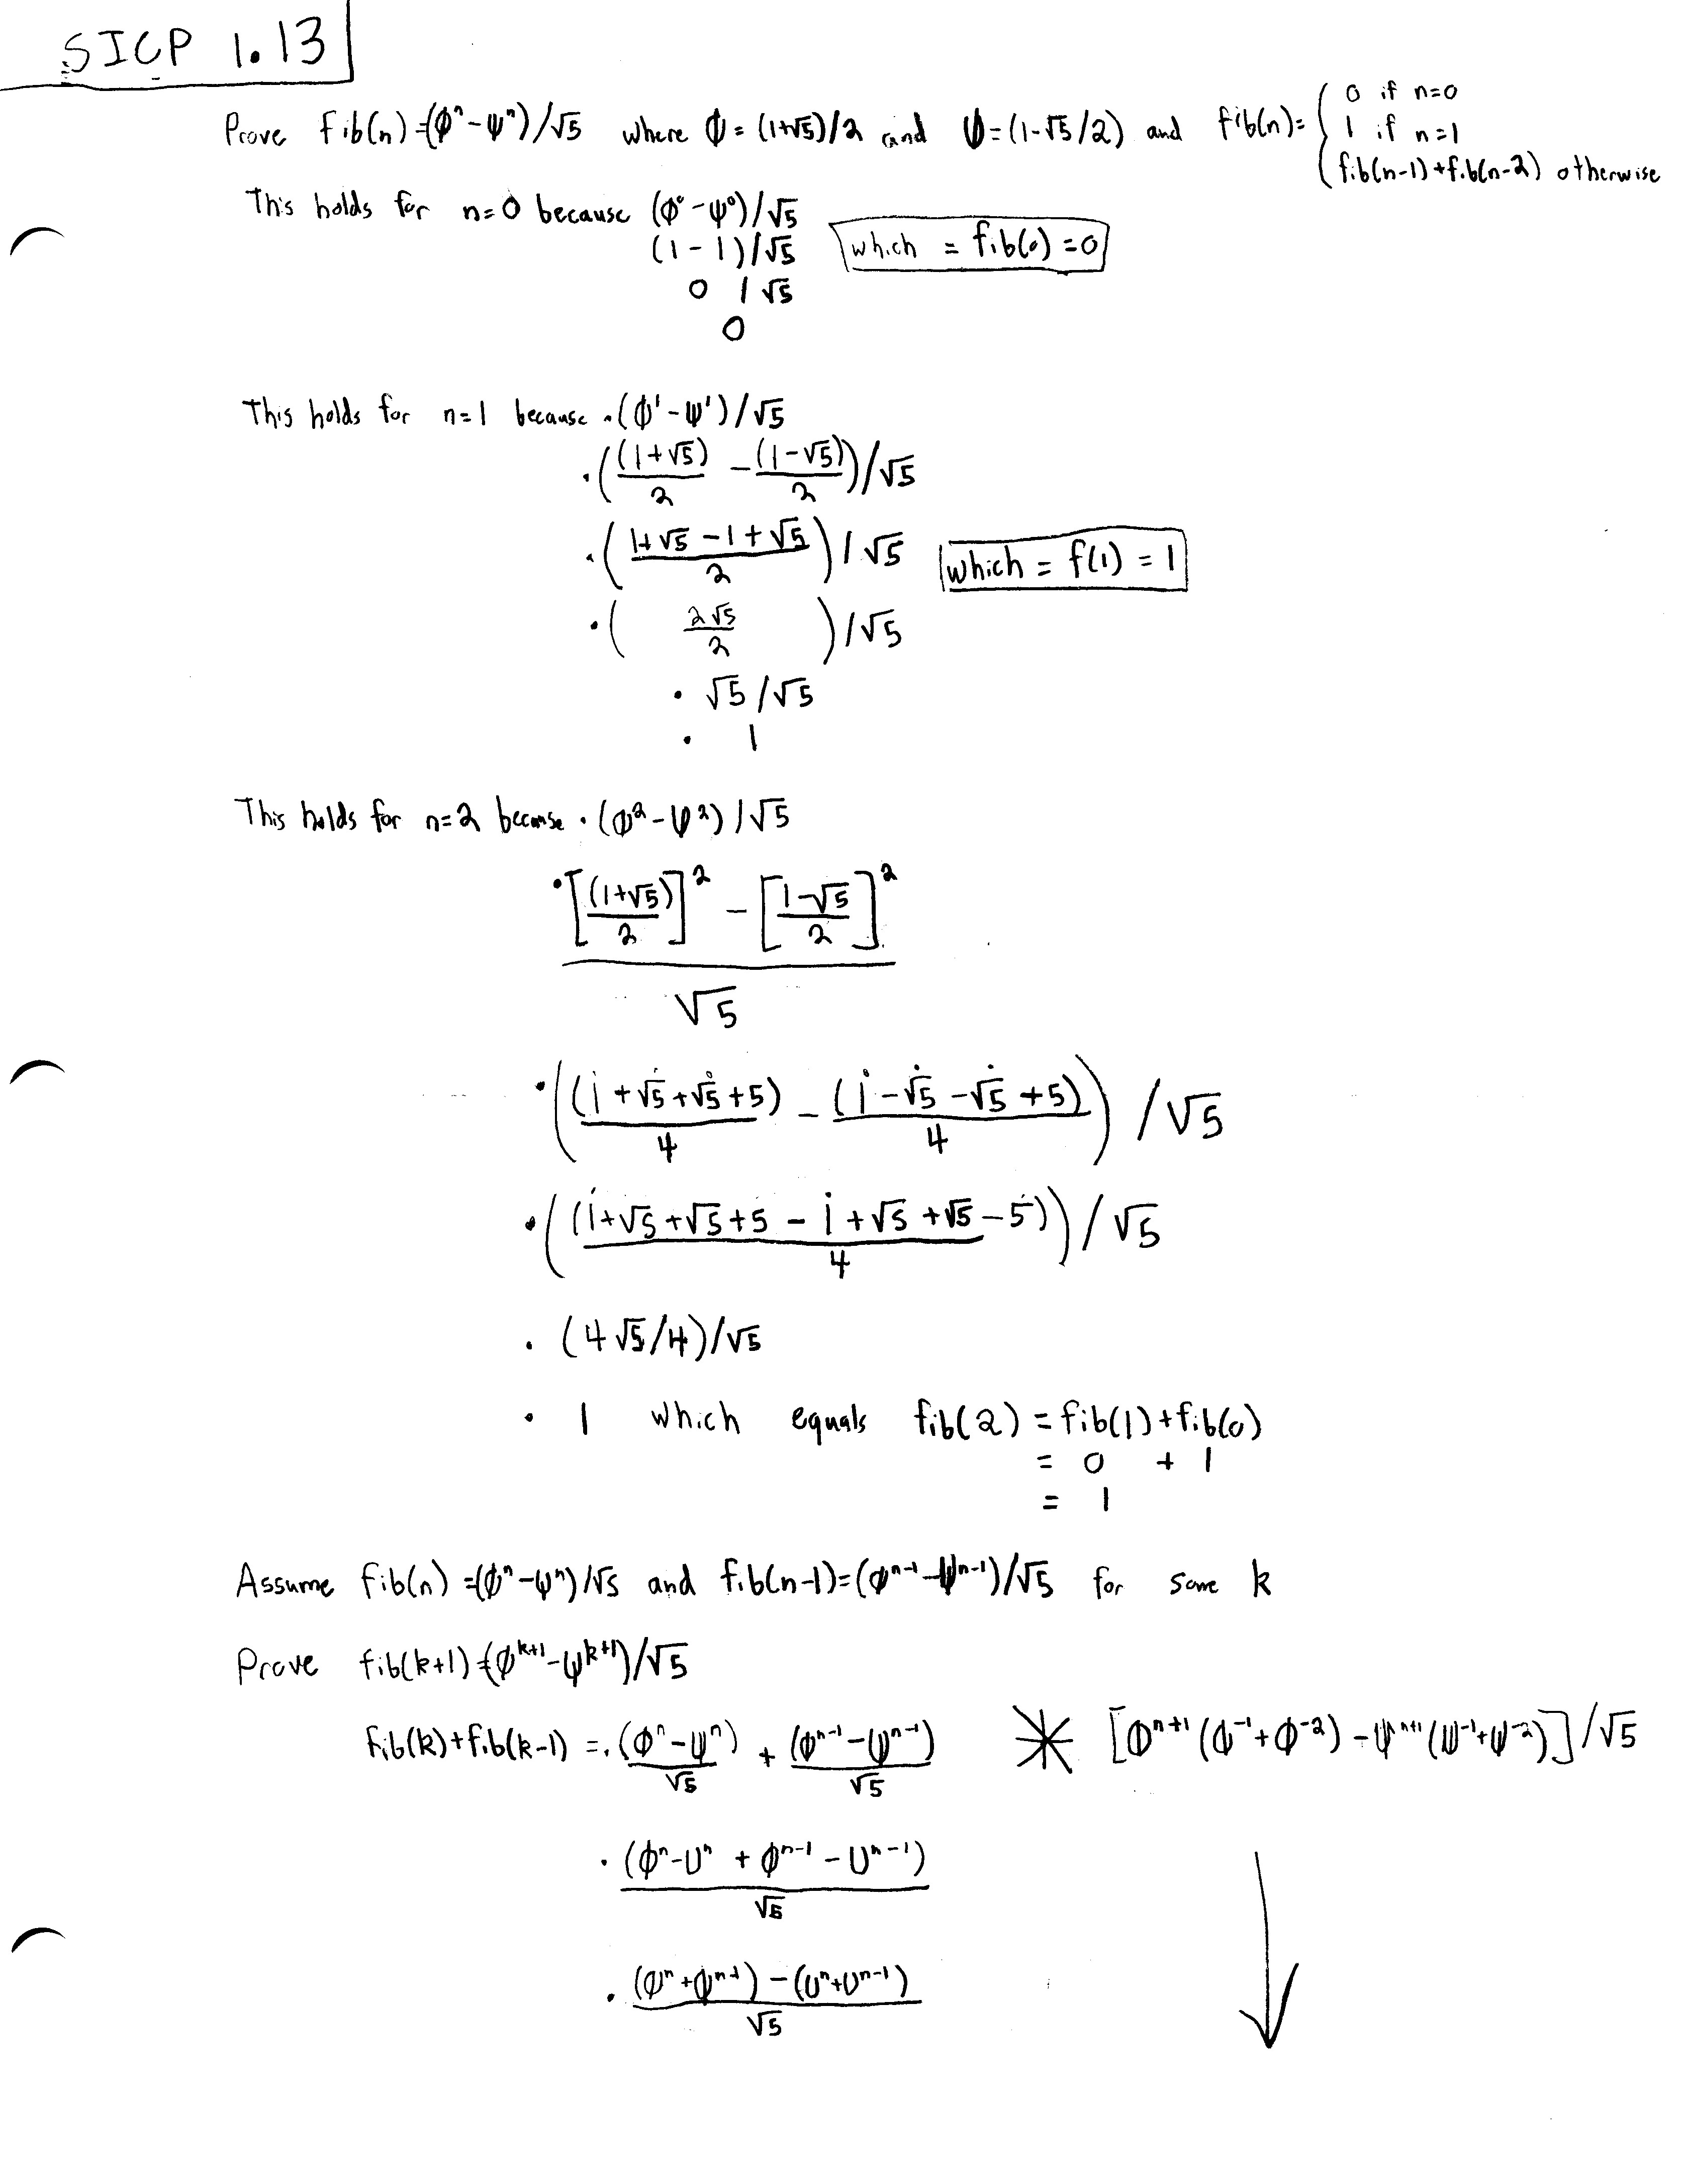 SICP 1.13
Prove fib(n)=(ϕⁿ-ψⁿ)/√5 where ϕ=(1+√5)/2 and ψ=(1-√5/2) and fib(n)= { 0 if n=0
1 if n=1
fib(n-1)+fib(n-2) otherwise
This holds for n=0 because (ϕ⁰-ψ⁰)/√5
(1-1)/√5 which = fib(0)=0
0 /√5
0
This holds for n=1 because ·(ϕ¹-ψ¹)/√5
·((1+√5)/2 - (1-√5)/2)/√5
·((1+√5-1+√5)/2)/√5 which = f(1) = 1
·(2√5/2)/√5
· √5/√5
· 1
This holds for n=2 because ·(ϕ²-ψ²)/√5
·([(1+√5)/2]² - [(1-√5)/2]²)/√5
·((1+√5+√5+5)/4 - (1-√5-√5+5)/4)/√5
·((1+√5+√5+5-1+√5+√5-5)/4)/√5
· (4√5/4)/√5
· 1 which equals fib(2) = fib(1)+fib(0)
= 0 + 1
= 1
Assume fib(n)=(ϕⁿ-ψⁿ)/√5 and fib(n-1)=(ϕⁿ⁻¹-ψⁿ⁻¹)/√5 for some k
Prove fib(k+1)=(ϕᵏ⁺¹-ψᵏ⁺¹)/√5
fib(k)+fib(k-1) =·(ϕⁿ-ψⁿ)/√5 + (ϕⁿ⁻¹-ψⁿ⁻¹)/√5 * [ϕⁿ⁺¹(ϕ⁻¹+ϕ⁻²)-ψⁿ⁺¹(ψ⁻¹+ψ⁻²)]/√5
·(ϕⁿ-υⁿ+ϕⁿ⁻¹-υⁿ⁻¹)/√5
·((ϕⁿ+ϕⁿ⁻¹)-(υⁿ+υⁿ⁻¹))/√5